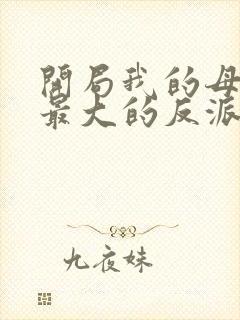 開局我的母
最大的反派
九夜妹